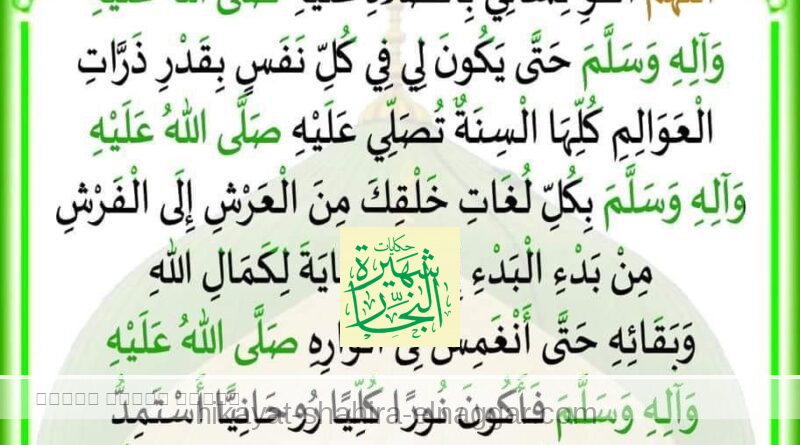 صَلَّى اللهُ عَلَيْهِ
وَآلِهِ وَسَلَّمَ حَتَّى يَكُونَ لِي فِي كُلِّ نَفَسٍ بِقَدْرِ ذَرَّاتِ
الْعَوَالِمِ كُلِّهَا الْسِنَةٌ تُصَلِّي عَلَيْهِ صَلَّى اللهُ عَلَيْهِ
وَآلِهِ وَسَلَّمَ بِكُلِّ لُغَاتِ خَلْقِكَ مِنَ الْعَرْشِ إِلَى الْفَرْشِ
مِنْ بَدْءِ الْبَدْءِ لِكَمَالِ اللهِ
حكايات
شهيرة
النجار
وَبَقَائِهِ حَتَّى أَنْغَمِسَ فِي أَنْوَارِهِ صَلَّى اللهُ عَلَيْهِ
وَآلِهِ وَسَلَّمَ فَأَكُونَ نُورًا كُلِّيًا رُوحَانِيًّا أَسْتَمِدُّ
hikayat-shahira-elnaggar.com